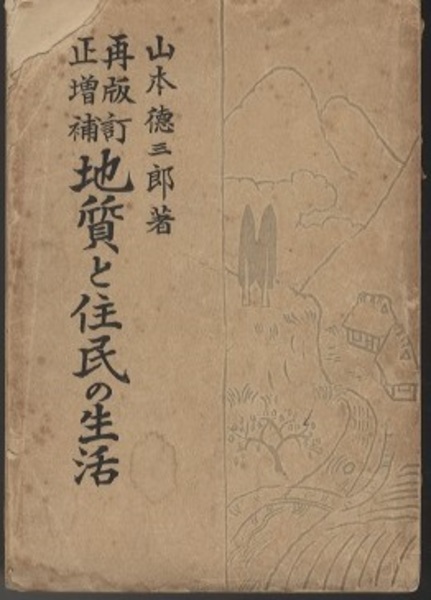 山本德三郎著
再版訂正増補
地質と住民の生活